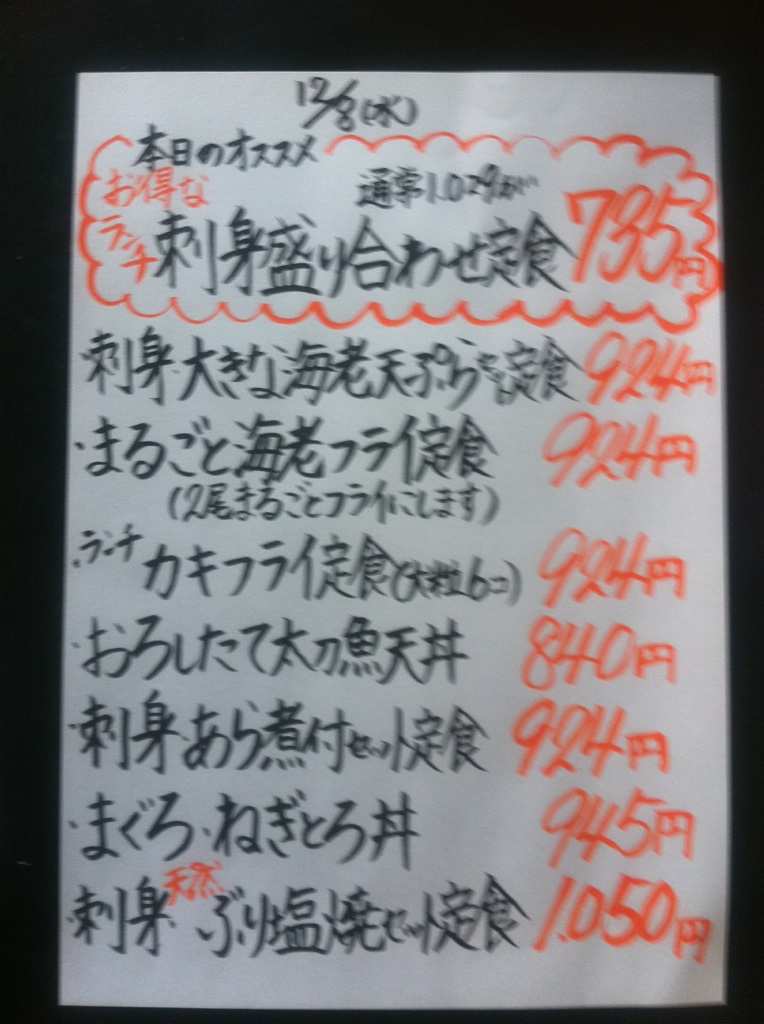 12/8(水)
本日のオススメ
お得な
ランチ
通常1.029が
刺身盛り合わせ定食 735円
・刺身・大きな海老天ぷら定食 924円
・まるごと海老フライ定食 924円
(2尾まるごとフライにします)
・ランチ カキフライ定食(大粒6コ) 924円
・おろしたて太刀魚天丼 840円
・刺身・あら煮付セット定食 924円
・まぐろ・ねぎとろ丼 945円
・刺身・天然ぶり塩焼セット定食 1.050円